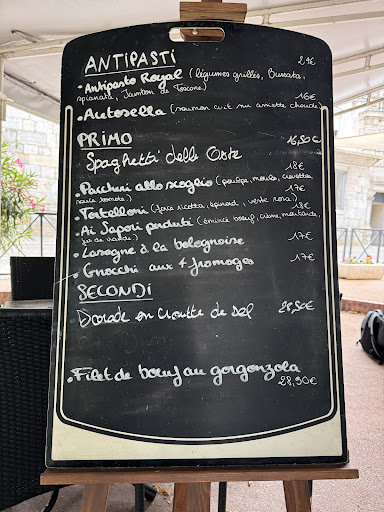 ANTIPASTI
• Antipasto Royal (légumes grillés, Burrata, 21€
spianata, Jambon de Toscane)
16€
• Autosella (saumon cuit sur assiette chaude)
PRIMO
16,50€
Spaghetti delle Oste
18€
• Paccheri allo scoglio (poulpe, moules, crevettes
sauce tomate) 17€
• Tortelloni (farce ricotta, épinard, rosa) 18€
• Ai Sapori perduti (émincé bœuf, crème, moutarde,
jus de viande) 17€
• Lasagne à la bolognaise
• Gnocchi aux 4 fromages 17€
SECONDI
Dorade en Croûte de sel 28,50€
• Filet de bœuf au gorgonzola
28,90€